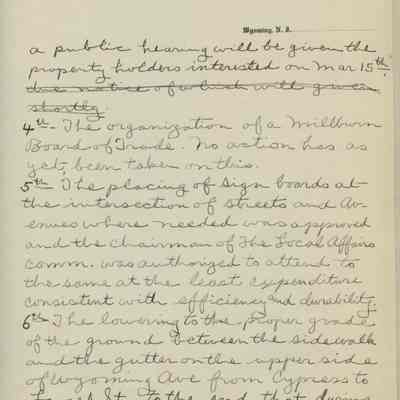 Wyoming, N. J.
a public hearing will be given the
property holders interested on Mar 15th.
due notice of which will given
shortly.
4th- The organization of a Millburn
Board of Trade. No action has as
yet, been taken on this.
5th The placing of sign boards at
the intersection of streets and Av-
enues where needed was approved
and the chairman of The Local Affairs
Comm. was authorized to attend to
the same at the least expenditure
consistent with efficiency and durability.
6th The lowering to the proper grade
of the ground between the sidewalk
and the gutter on the upper side
of Wyoming Ave from Cypress to
St. to the end that during